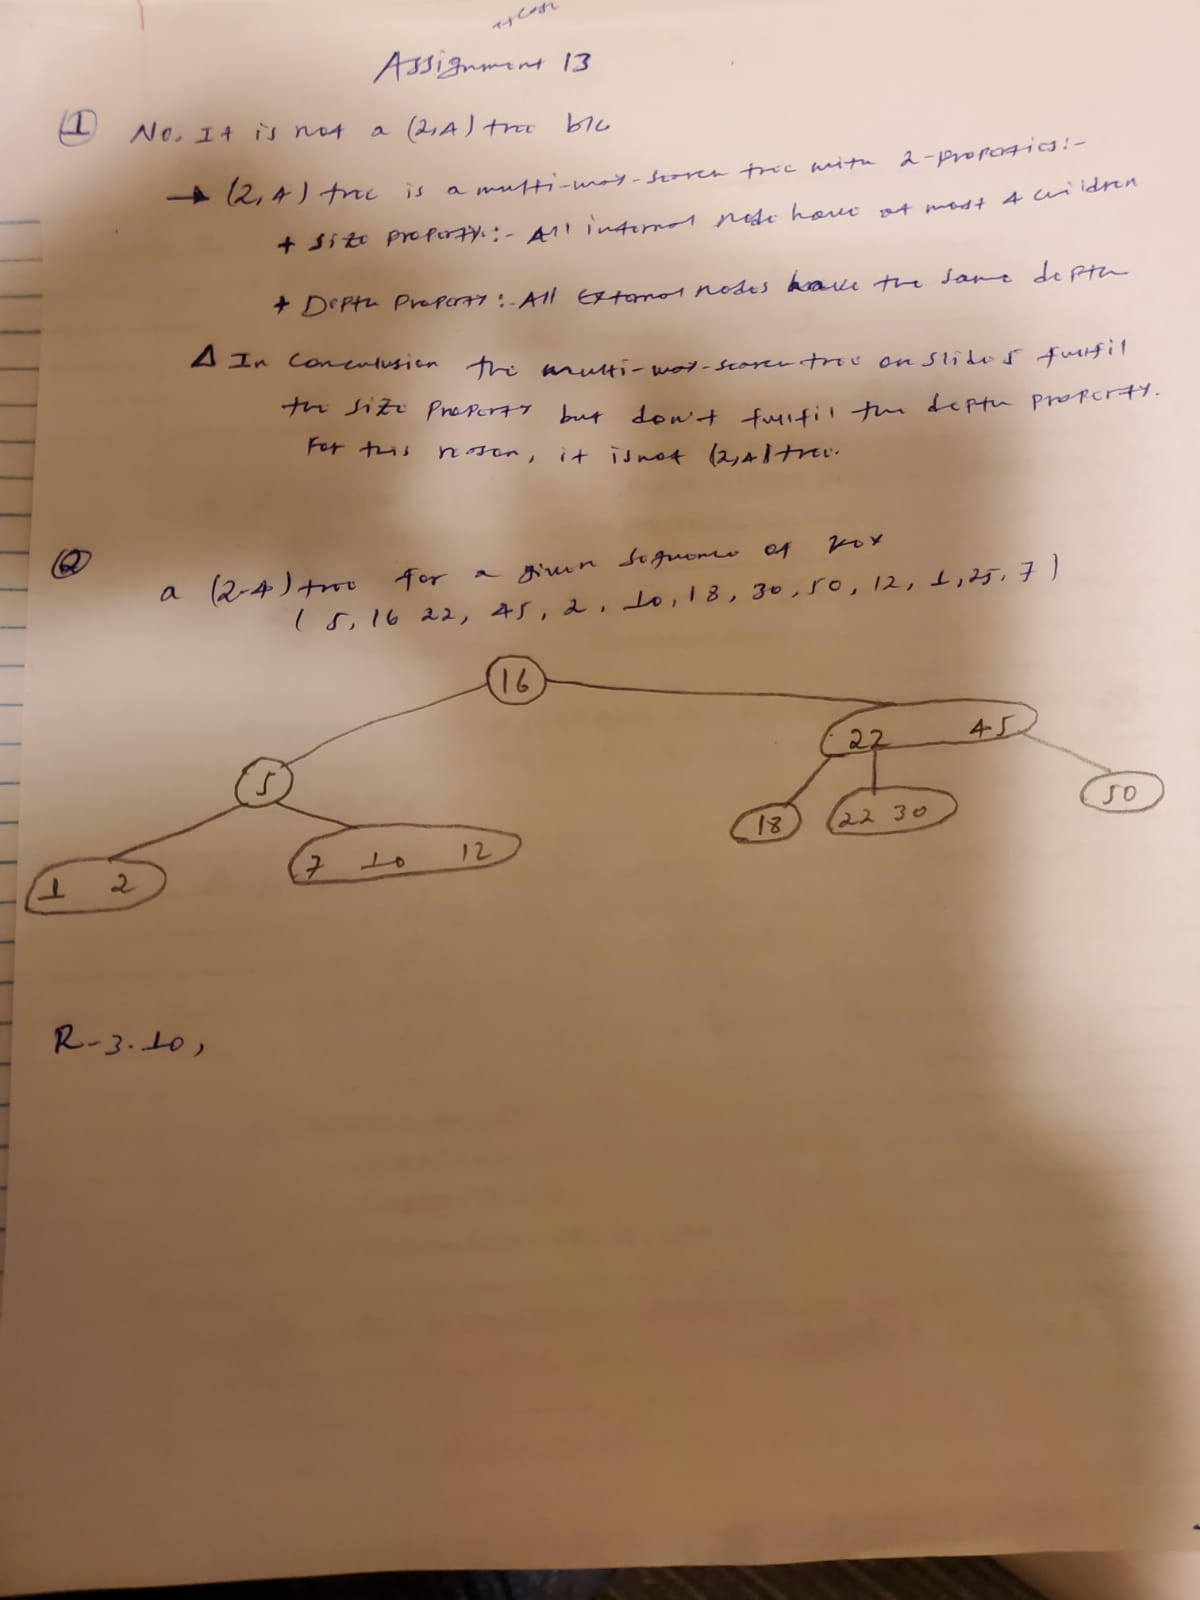 Assignment 13
1 No. It is not a (2,4) tree b/c
→ (2,4) tree is a multi-way-search tree with 2-properties:-
+ Size property:- All internal node have at most 4 children
+ Depth Property:- All External nodes have the same depth
Δ In Conculusion the multi-way-search tree on slide 5 fulfil
the size Property but don't fulfil the depth property.
For this reason, it is not (2,4) tree.
2
a (2-4) tree for a given sequence of
( 5, 16 22, 45, 2, 10, 18, 30, 50, 12, 1, 25, 7 )
16
22 45
5
18 22 30 50
1 2 7 10 12
R-3.10,